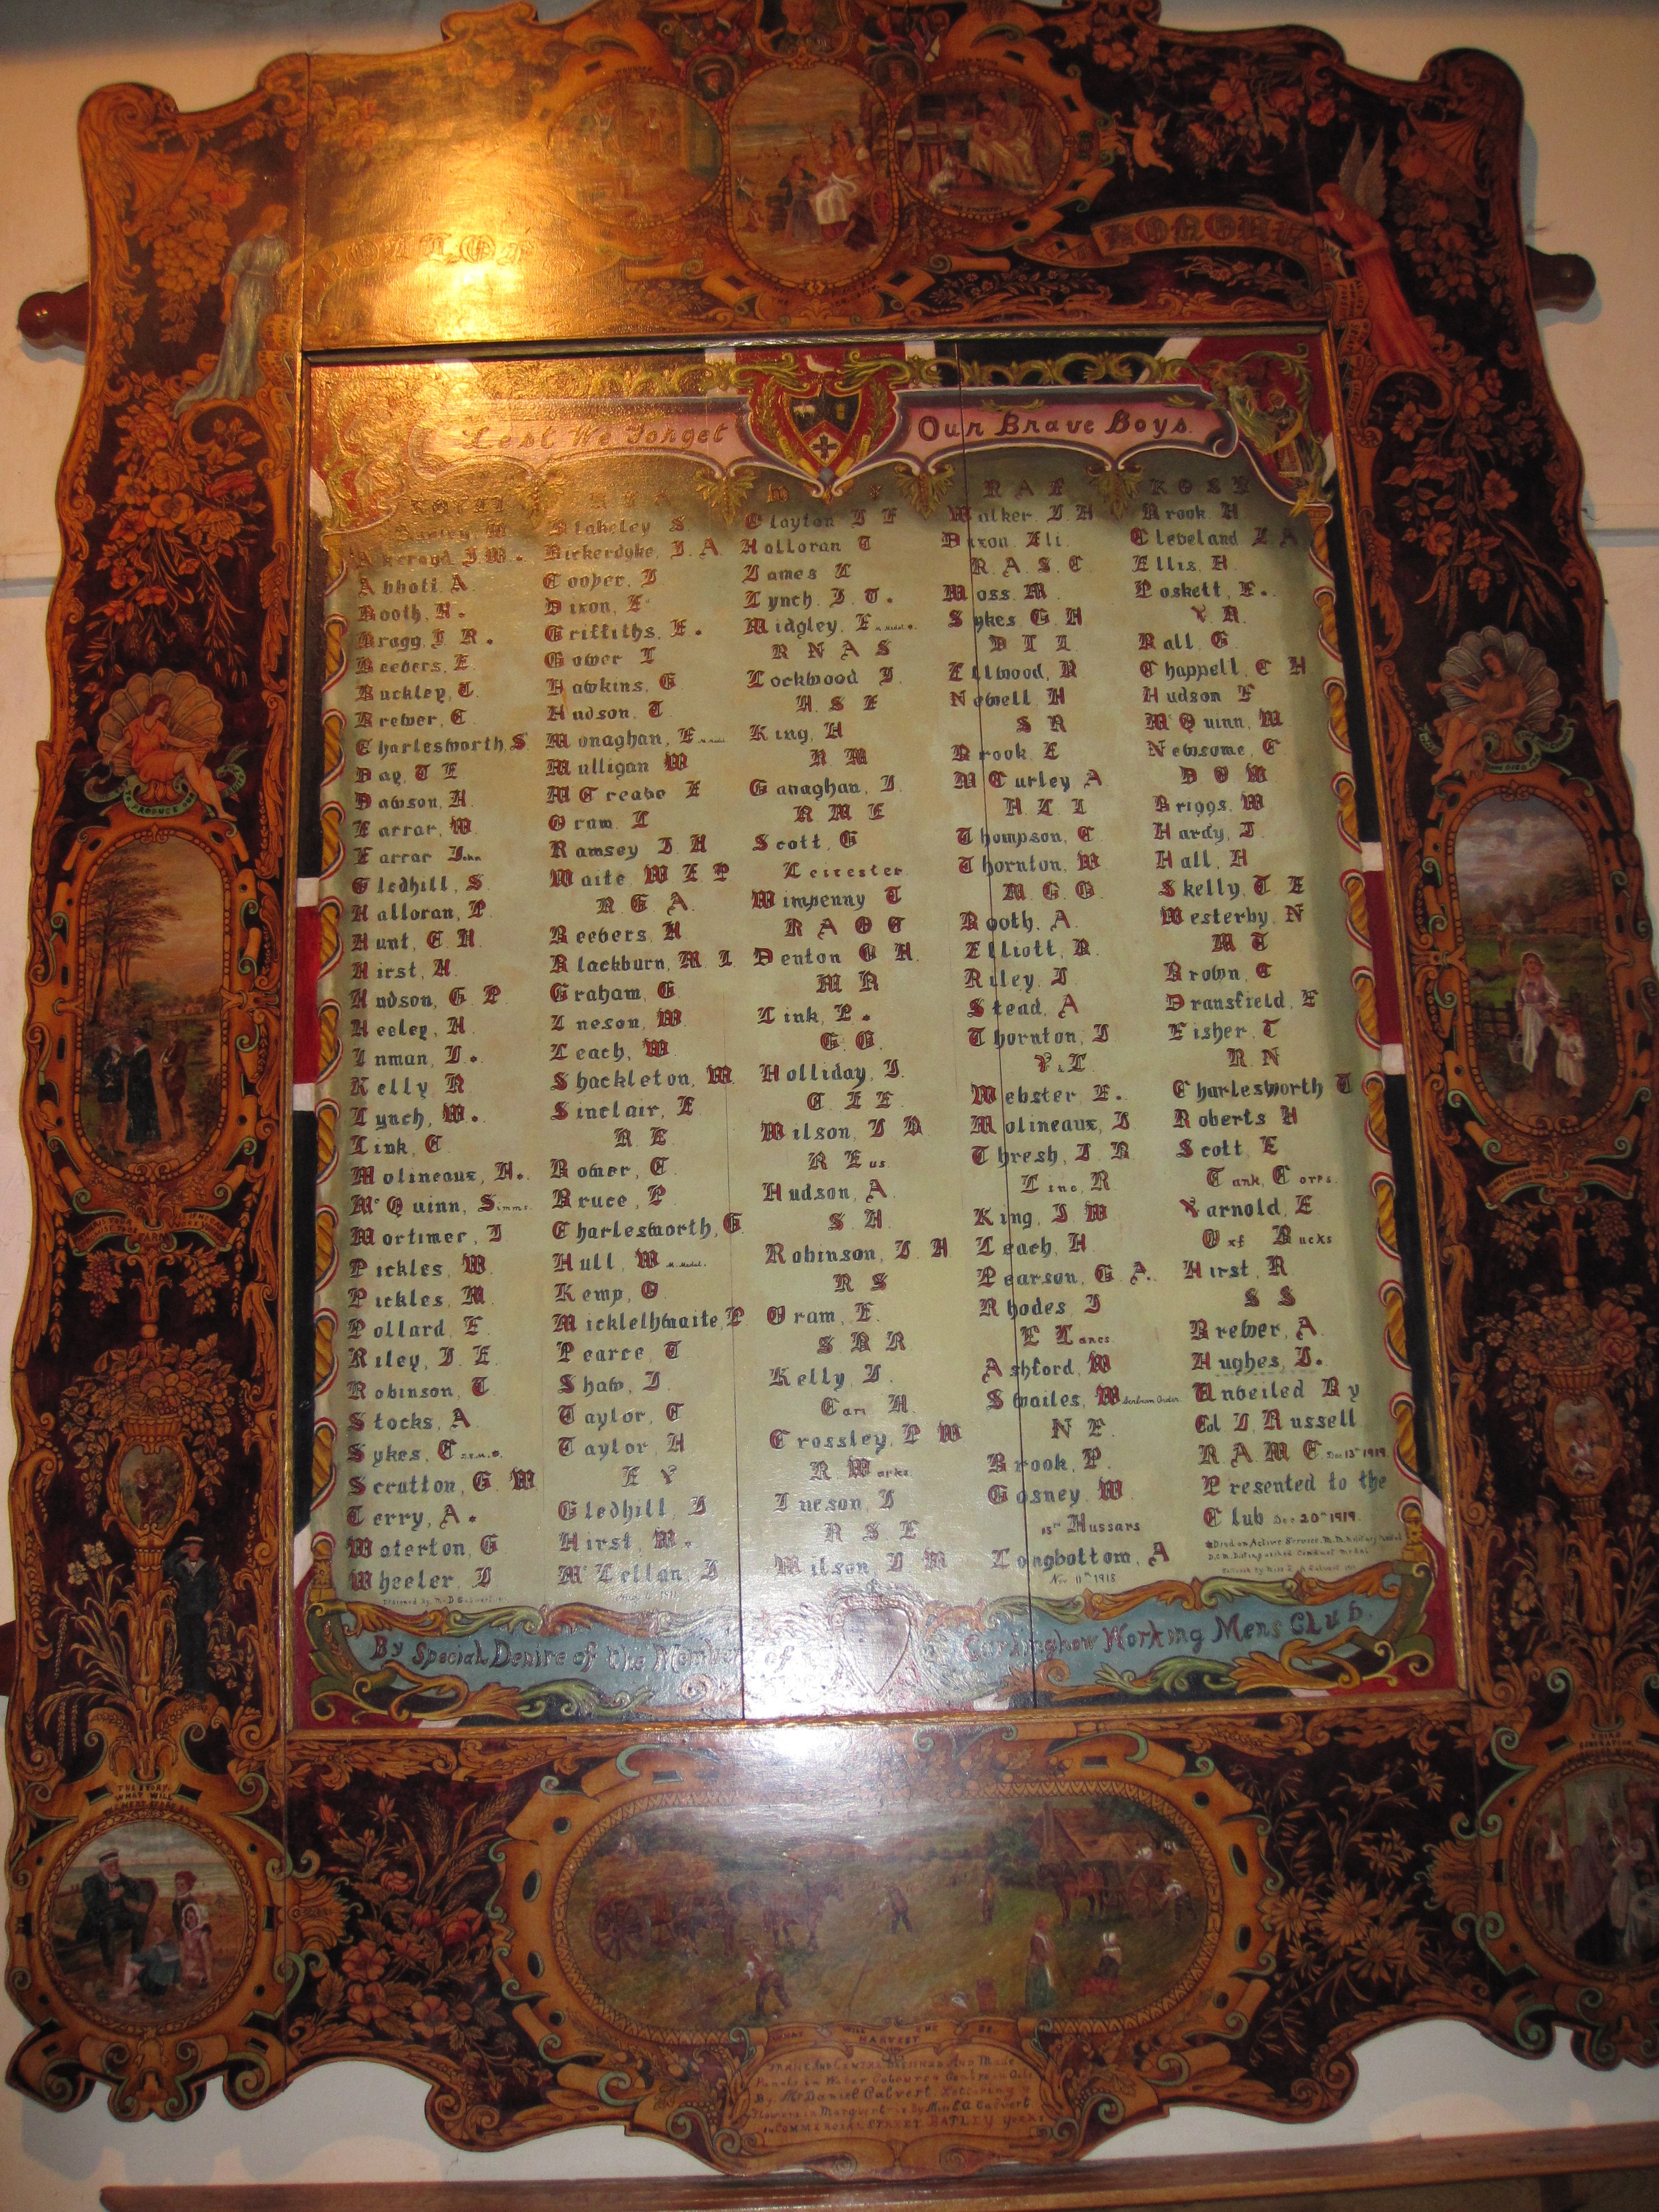 ROLL OF
HONOUR
Lest We Forget
Our Brave Boys.
Akeroyd, J W.
Abbott, A.
Booth, H.
Bragg, J R.
Beevers, E.
Buckley, T.
Brewer, C.
Charlesworth, S
Day, T E
Dawson, H.
Farrar, W.
Farrar John
Gledhill, S.
Halloran, P.
Hunt, C H.
Hirst, H.
Hudson, G. P.
Heeley, H.
Inman, J.
Kelly R
Lynch, W.
Link, C
Molineaux, H.
McQuinn, Simms.
Mortimer, J
Pickles, W.
Pickles, M.
Pollard, E.
Riley, J. E.
Robinson, T.
Stocks, A
Sykes, C
Scratton, G W
Terry, A.
Waterton, G
Wheeler, J
Blakeley S.
Bickerdyke, J. A.
Cooper, J
Dixon, E
Griffiths, E.
Gower L
Hawkins, G
Hudson, T.
Monaghan, E
Mulligan W
Oram, L
Ramsey J. H
Waite W E P
R G A.
Beevers H
Blackburn, M. L
Graham, G
Ineson, W.
Leach, W.
Shackleton, W
Sinclair, E
R E
Bower, C.
Bruce, P
Charlesworth, G
Hull, W. M. Medal.
Kemp, O
Micklethwaite, P
Pearce T
Shaw, J.
Taylor, C
Taylor, H
E Y
Gledhill, J
Hirst, W.
McLellan, J
Clayton J F
Halloran T
James L
Lynch. J. T.
Midgley, E M. Medal
R N A S
Lockwood J.
King, H
R M
Ganaghan, J.
R M E
Scott, G
Leicester
Wimpenny T
R A O C
Denton C H.
M R
Link, P.
G. G.
Holliday, J.
C E F
Wilson, J B
R Fus
Hudson, A
S H
Robinson, J H
R S
Oram, E.
S R R
Kelly, J.
Car H.
Crossley, P W
R Works
Ineson, J
R S F
Wilson, J W
R A F
Walker. J. H
Dixon. Eli.
R. A. S. C
Moss. M.
Sykes G. H
D L I
Ellwood, R
Newell H
S R
Brook E
McCurley A
H L I
Thompson, C
Thornton, W
M. G. C.
Booth, A.
Elliott, B.
Riley, J
Stead, A
Thornton, J
Y & L
Webster, E.
Molineaux, J
Thresh, J B
Linc, R.
King, J W
Leach, H.
Pearson, G. A.
Rhodes, J
E Lancs
Ashford, W
Swailes, W Serbian Order.
N F.
Brook, P.
Gosney, W.
15th Hussars
Longbottom, A
Nov 11th 1918
K O S B
Brook. H
Cleveland J A
Ellis, H.
Poskett, F.
Y R.
Ball, G
Chappell, C H
Hudson F
McQuinn, W
Newsome, C.
D O W
Briggs, W
Hardy, J.
Hall, H
Skelly, T. E
Westerby, N
M T
Brown, C
Dransfield, E
Fisher, T
R. N
Charlesworth T
Roberts H
Scott, E
Tank, Corps.
Yarnold, E
Oxf Bucks
Hirst, R
S S
Brewer, A.
Hughes, J.
Unveiled By
Col J. Russell
R A M C Dec 13th 1919
Presented to the
Club Dec 20th 1919.
Died on Active Service. M. M. Military Medal
D.C.M. Distinguished Conduct Medal
By Special Desire of the Members of
Carlinghow Working Mens Club.
TO PRODUCE OUR
THE STORY.
WHAT WILL
WHAT WILL THE HARVEST BE.
FRAME AND CENTRE DESIGNED AND Made
Panels in Water Colours
By Mr Daniel Calvert. Lettering &
Flowers in Marquert by Miss E A Calvert
in COMMERCIAL STREET BATLEY Yorks